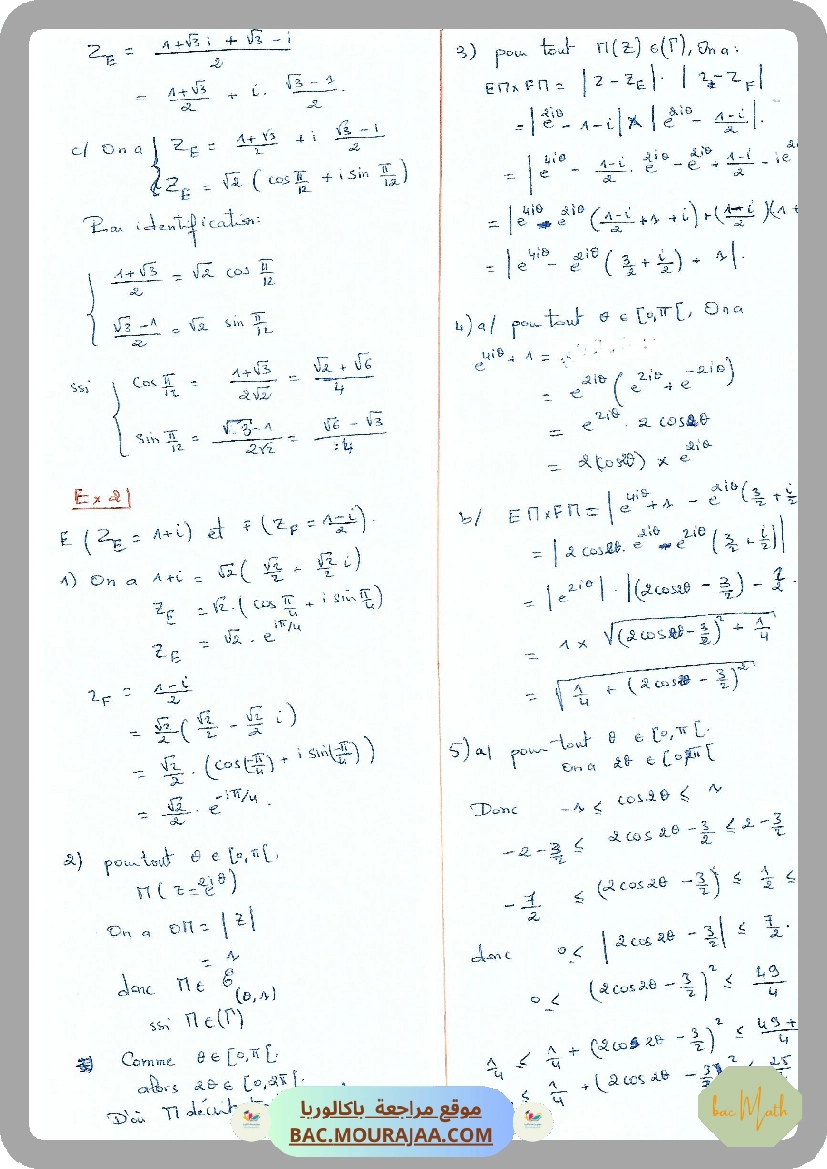 Z_E = (1+√3 i + √3 - i)/2
= (1+√3)/2 + i. (√3 - 1)/2.
c/ On a { Z_E = (1+√3)/2 + i (√3-1)/2
Z_E = √2 (cos π/12 + i sin π/12)
Par identification:
{ (1+√3)/2 = √2 cos π/12
(√3-1)/2 = √2 sin π/12
ssi { cos π/12 = (1+√3)/(2√2) = (√2+√6)/4
sin π/12 = (√3-1)/(2√2) = (√6-√3)/4
Ex 2|
E (Z_E = 1+i) et F (Z_F = (1-i)/2).
1) On a 1+i = √2( √2/2 + √2/2 i)
Z_E = √2.( cos π/4 + i sin π/4)
Z_E = √2 . e^(iπ/4)
Z_F = (1-i)/2
= √2/2 ( √2/2 - √2/2 i)
= √2/2 . (cos(-π/4) + i sin(-π/4))
= √2/2 . e^(-iπ/4).
2) pour tout θ ∈ [0,π[.
M( z = e^(2iθ))
On a OM = |Z|
= 1
donc M ∈ C_(O,1)
ssi M ∈ (Γ)
Comme θ ∈ [0,π[.
alors 2θ ∈ [0,2π[.
D'où M décrit
3) pour tout M(Z) ∈ (Γ), On a:
EM×FM = |Z - Z_E| . |Z - Z_F|
= |e^(2iθ) - 1 - i| × |e^(2iθ) - (1-i)/2|.
= |e^(4iθ) - (1-i)/2 . e^(2iθ) - e^(2iθ) + (1-i)/2 - ie
= |e^(4iθ) - e^(2iθ) ((1-i)/2 + 1 + i) + ((1-i)/2)(1+
= |e^(4iθ) - e^(2iθ) (3/2 + i/2) + 1|.
4) a/ pour tout θ ∈ [0,π[, On a
e^(4iθ) + 1 =
= e^(2iθ) (e^(2iθ) + e^(-2iθ))
= e^(2iθ) . 2 cos2θ
= 2(cos2θ) × e^(2iθ)
b/ EM×FM = |e^(4iθ) + 1 - e^(2iθ) (3/2 + i/2
= |2 cos2θ. e^(2iθ) - e^(2iθ) (3/2 + i/2)|
= |e^(2iθ)| . |(2cos2θ - 3/2) - i/2
= 1 × √((2cos2θ - 3/2)² + 1/4)
= √(1/4 + (2cos2θ - 3/2)²)
5) a/ pour tout θ ∈ [0,π[.
On a 2θ ∈ [0,2π[
Donc -1 ≤ cos2θ ≤ 1
-2 - 3/2 ≤ 2cos2θ - 3/2 ≤ 2 - 3/2
-7/2 ≤ (2cos2θ - 3/2) ≤ 1/2 ≤
donc 0 ≤ |2cos2θ - 3/2| ≤ 7/2.
0 ≤ (2cos2θ - 3/2)² ≤ 49/4
1/4 ≤ 1/4 + (2cos2θ - 3/2)² ≤ (49+)/4
≤ 1/4 + (2cos2θ - 3/2)² ≤ 25
موقع مراجعة باكالوريا
BAC.MOURAJAA.COM
bac Math